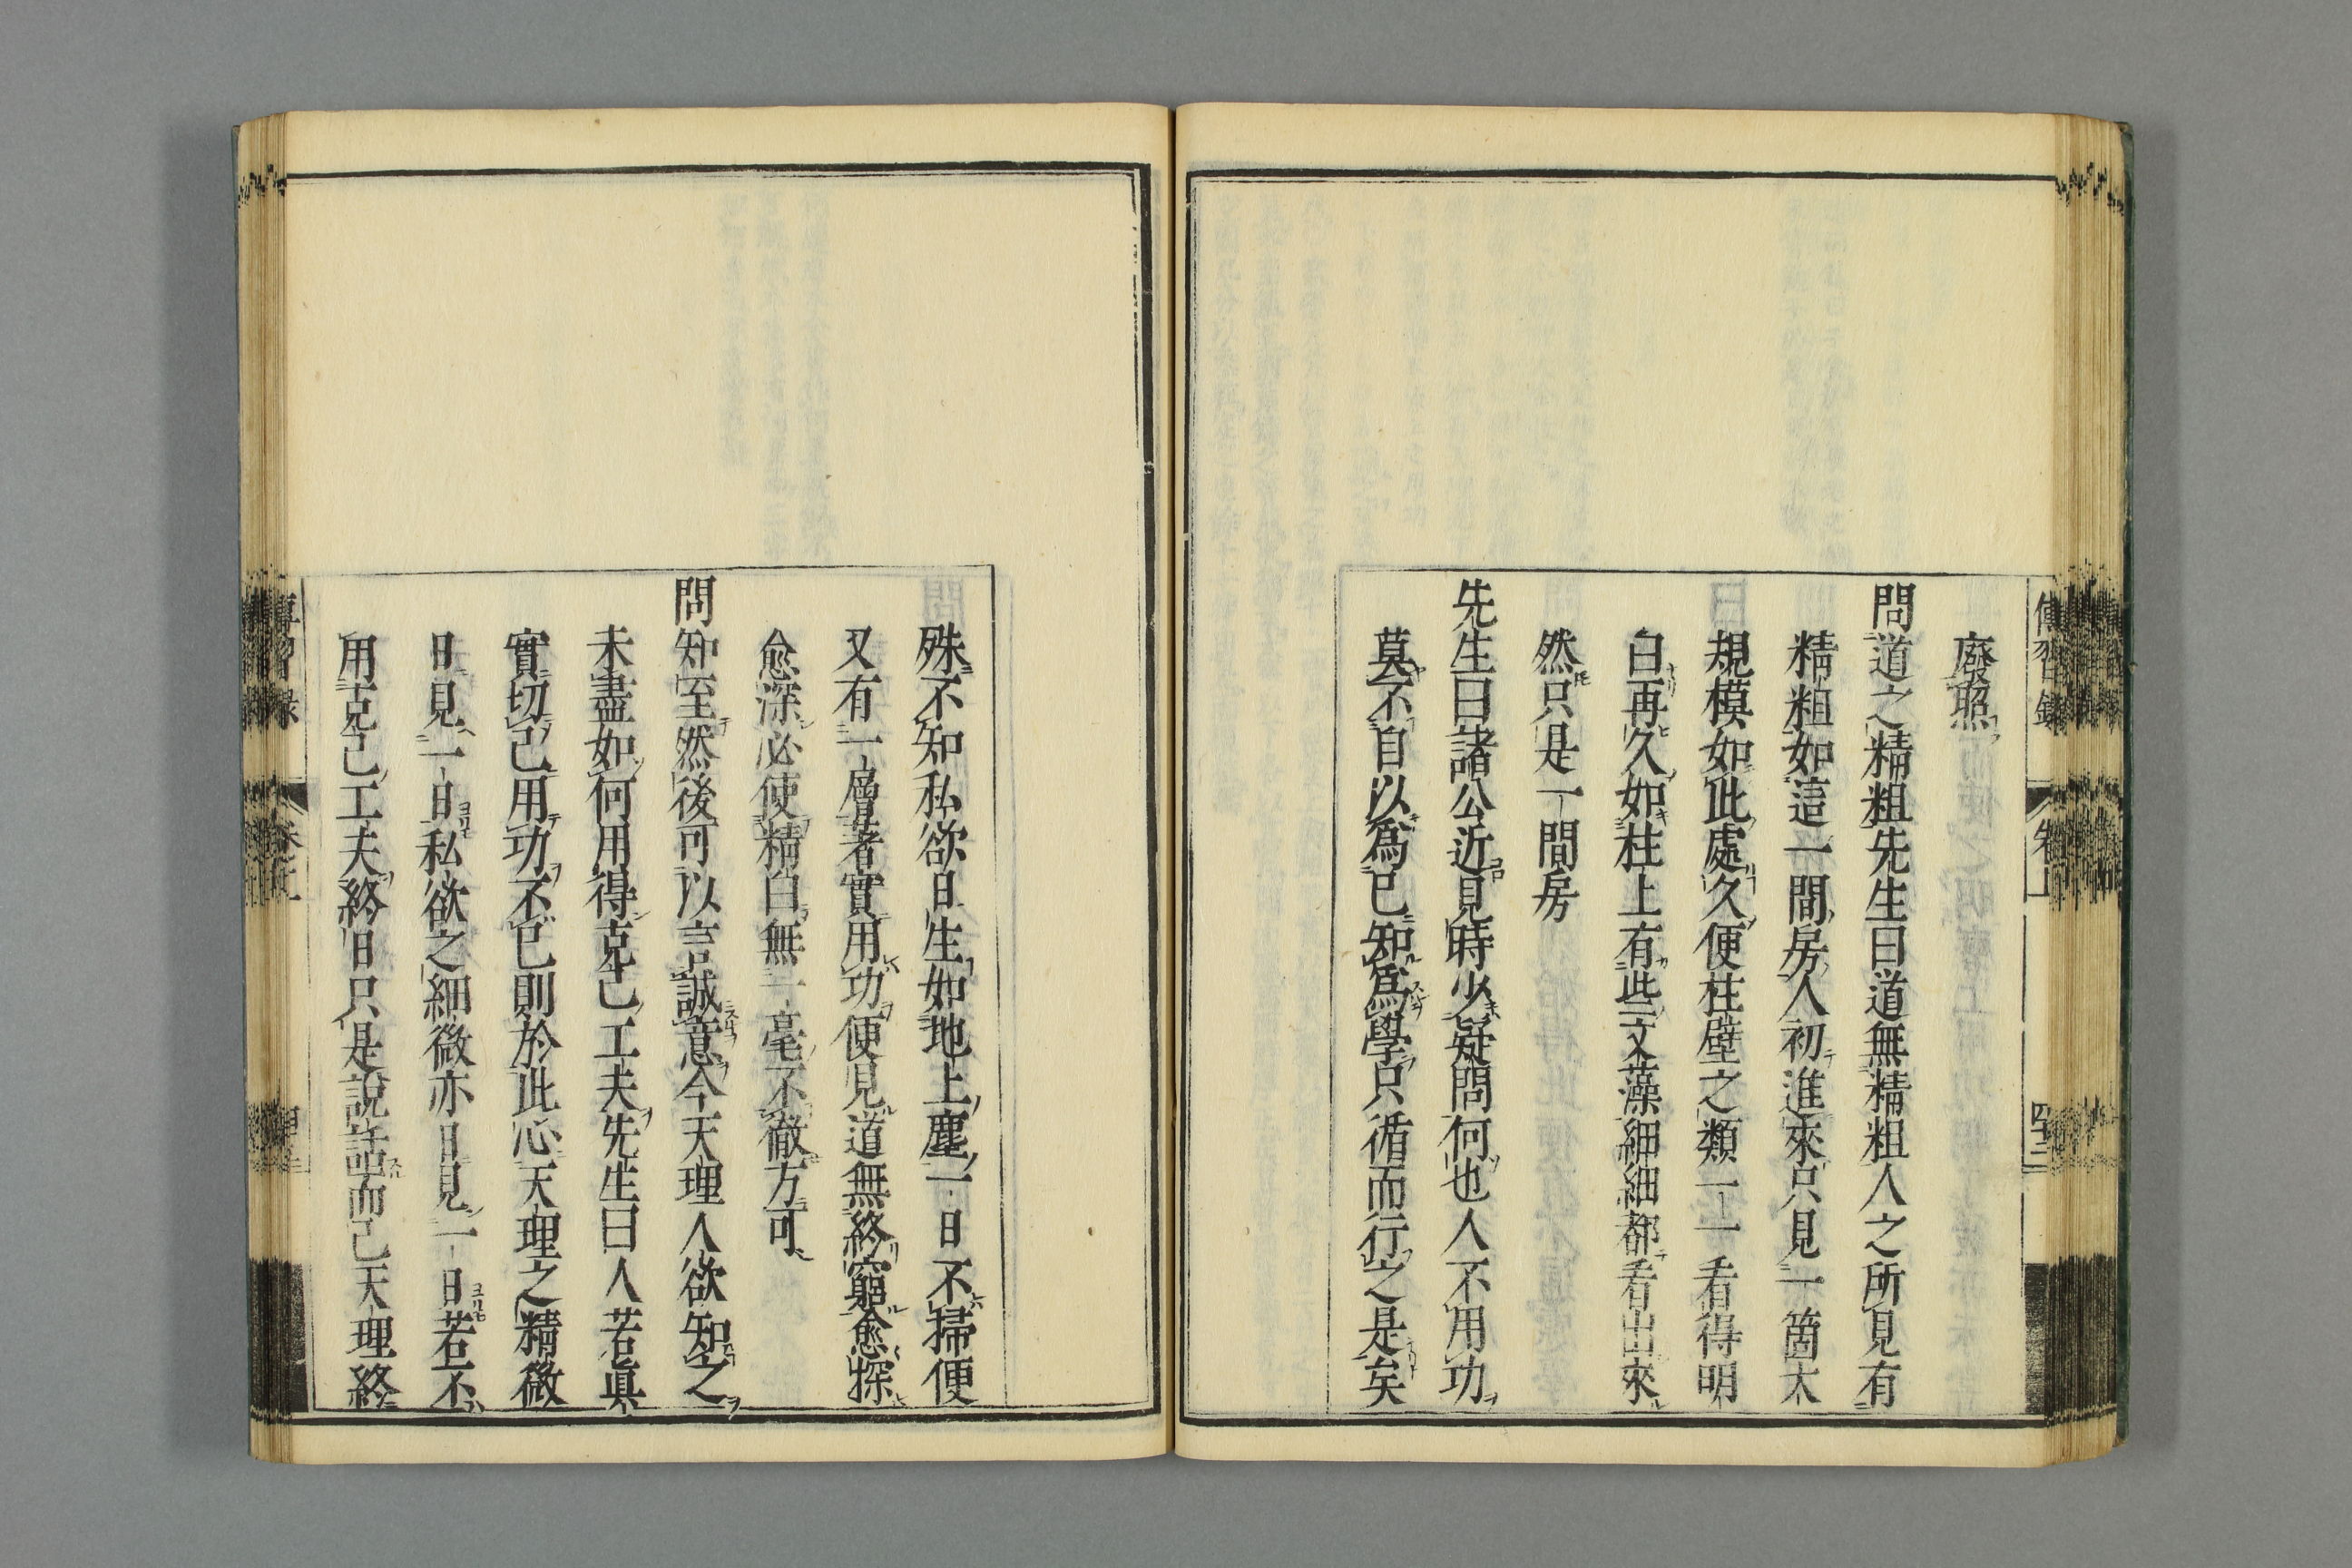 廢照
問道之精粗先生曰道無精粗人之所見有
精粗如這一間房人初進來只見一箇大
規模如此處久便柱壁之類一一看得明
白再久如柱上有些文藻細細都看出來
然只是一間房
先生曰諸公近見時少疑問何也人不用功
莫不自以爲已知爲學只循而行之是矣
殊不知私欲日生如地上塵一日不掃便
又有一層著實用功便見道無終窮愈探
愈深必使精白無一毫不徹方可
問知至然後可以言誠意今天理人欲知之
未盡如何用得克己工夫先生曰人若真
實切己用功不已則於此心天理之精微
日見一日私欲之細微亦日見一日若不
用克己工夫終日只是說話而已天理終
傳習錄
卷上